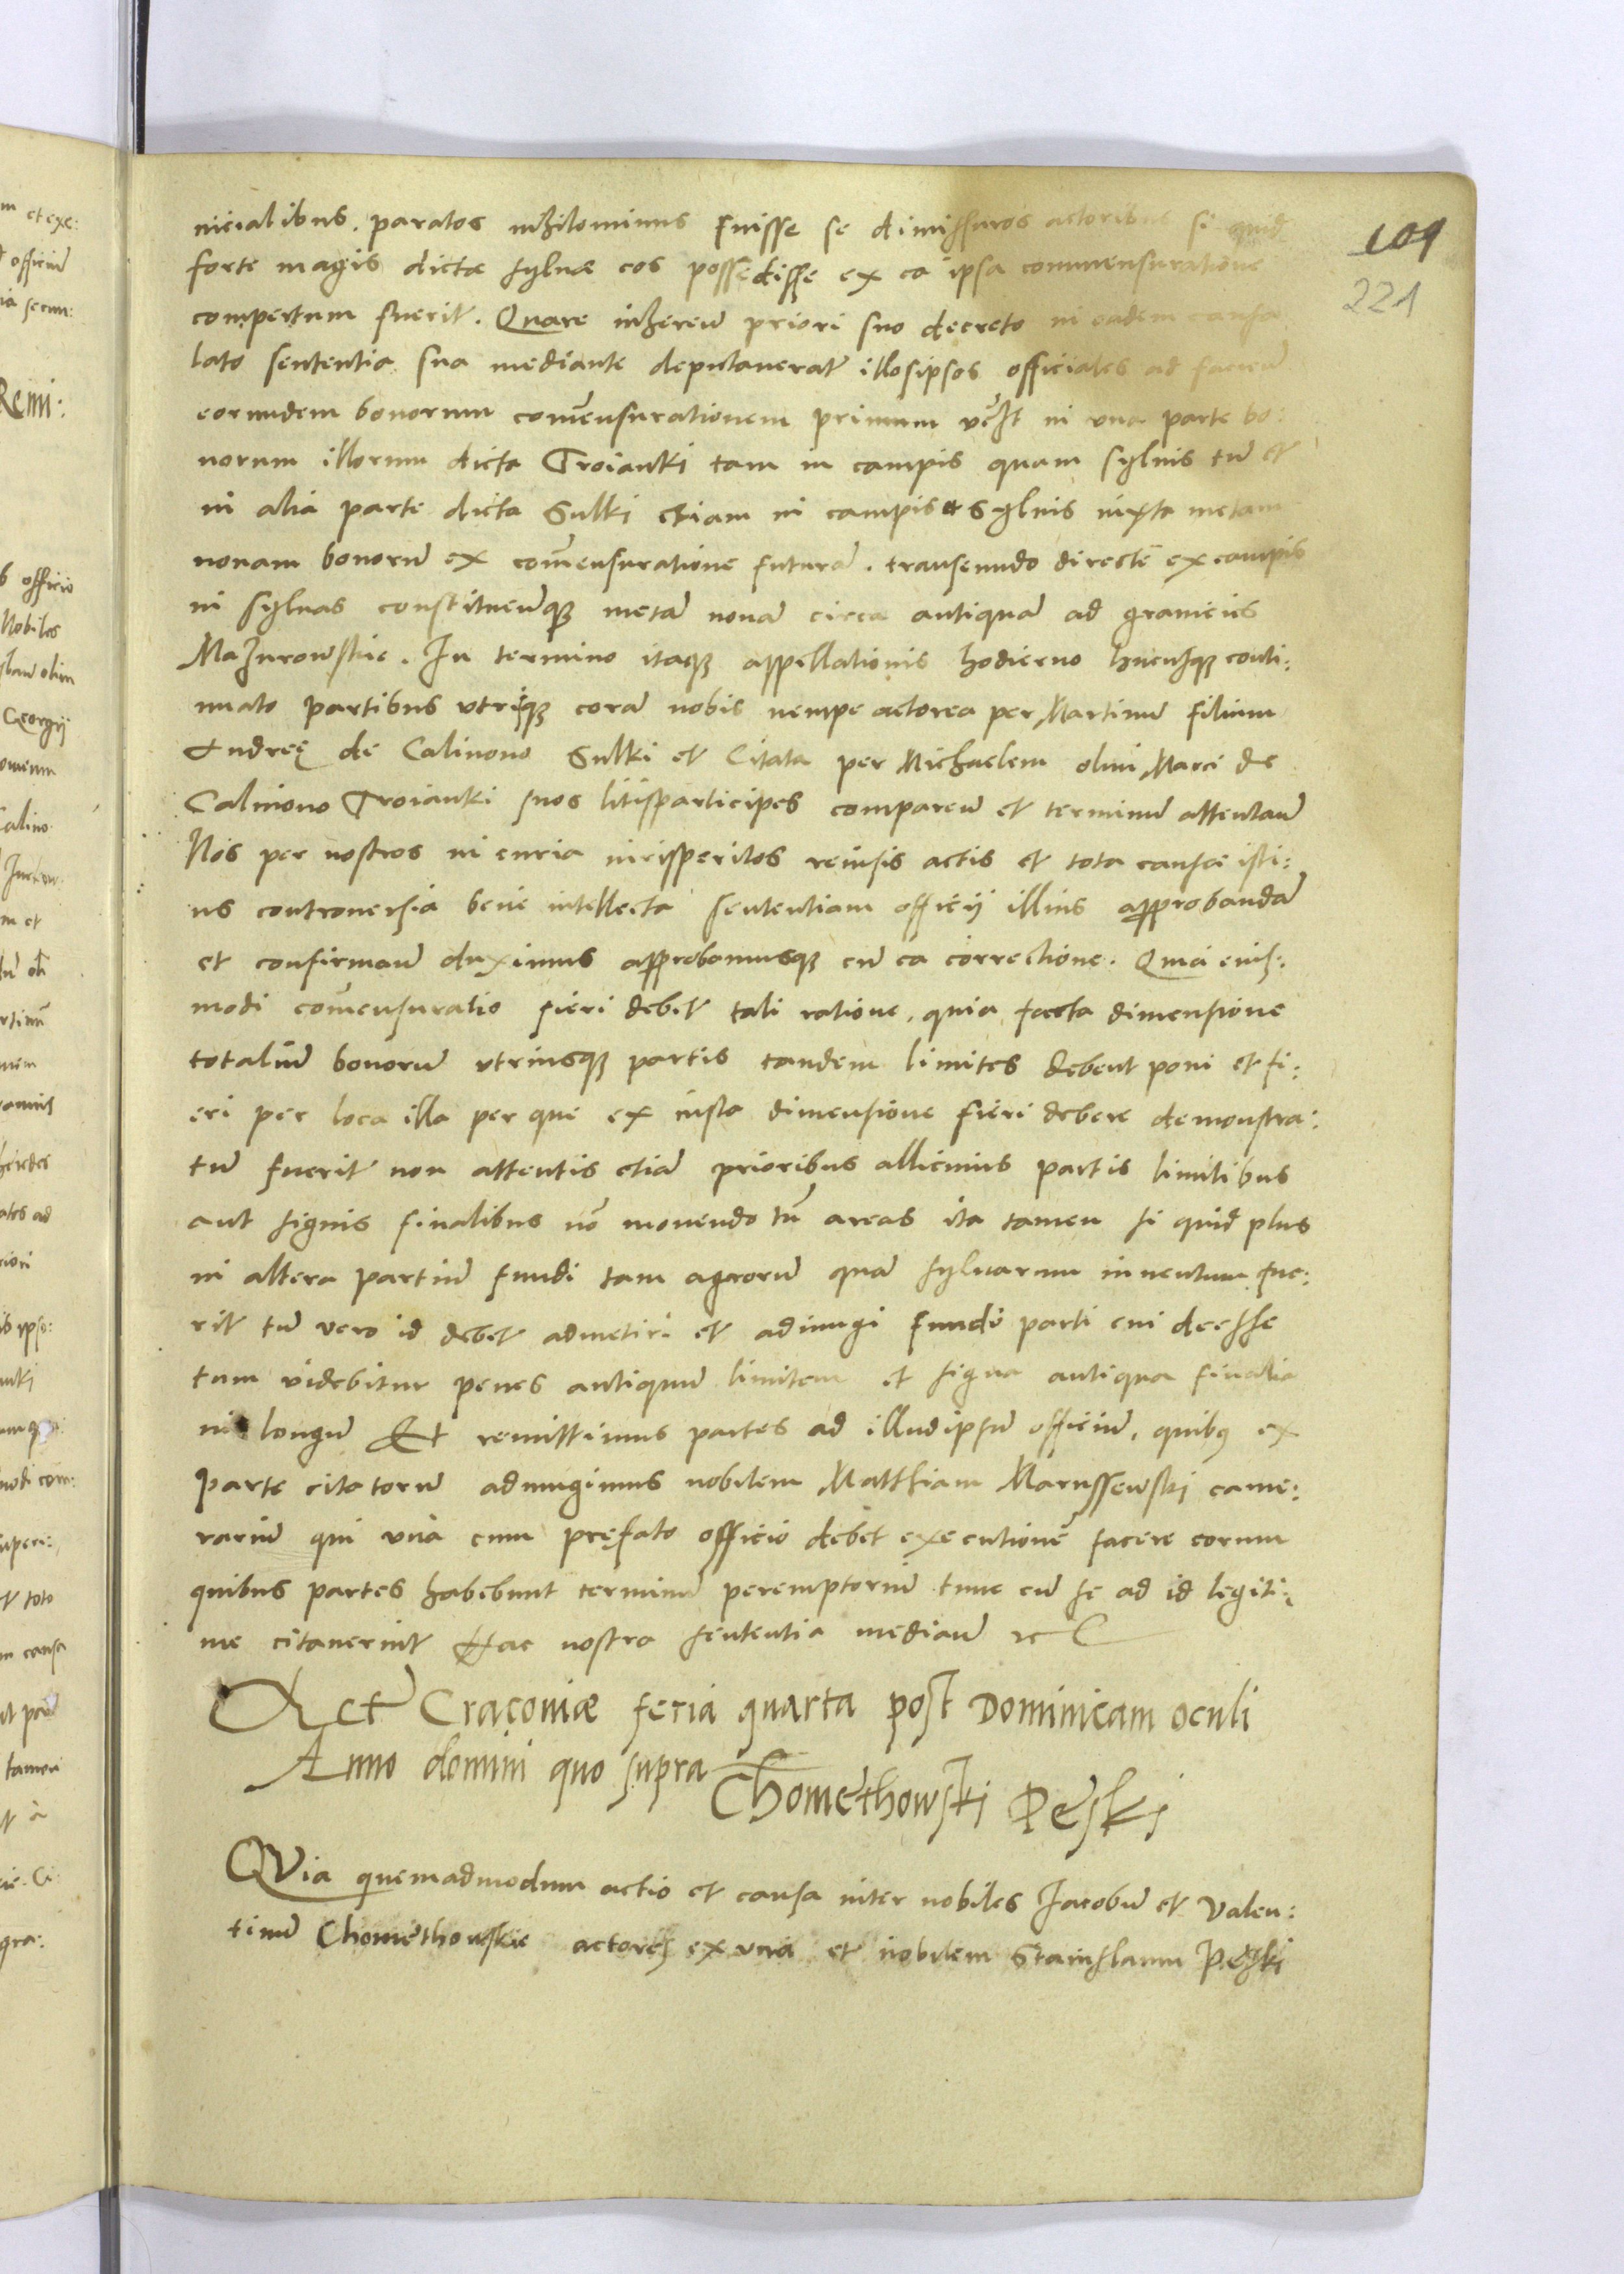 109
221
nicialibus. paratos nihilominus fuisse se dimissuros actoribus si quid
forte magis dictæ sylvæ eos possedisse ex ea ipsa commensuratione
compertum fuerit. Quare inhereñ priori suo decreto in eadem causa
lato sententia sua mediante deputaverat illosipsos officiales ad facieñ
eorundem bonorum com̃ensurationem primum in una parte bo:
norum illorum dicta Troianki tam in campis quam sylvis tũ et
in alia parte dicta Sulki etiam in campis et sylvis iuxta metam
novam bonorũ ex com̃ensuratione futurã. transeundo directe ex campis
in sylvas constitueñqȝ metã novã circa antiquã ad granicies
Mazurowskie. In termino itaqȝ appellationis hodierno hucusqȝ conti:
nuato partibus utrisqȝ corã nobis nempe actorea per Martinũ filium
Andreę de Calinovo Sulki et Citata per Michaelem olim Marci de
Calinovo Troianki suos litisparticipes compareñ et terminũ attentañ
Nos per nostros in curia iurisperitos revisis actis et tota causæ isti:
us controversia bene intellecta sententiam officij illius approbandã
et confirmañ duximus approbamusqȝ cũ ea correctione. Quia eius:
modi com̃ensuratio fieri debet tali ratione, quia facta dimensione
totaliũ bonorũ utriusqȝ partis tandem limites debent poni et fi:
eri per loca illa per que ex iusta dimensione fieri debere demonstra:
tũ fuerit non attentis etiã prioribus allicuius partis limitibus
aut signis finalibus nõ movendo tñ areas ita tamen si quid plus
in altera partiũ fundi tam agrorũ quã sylvarum inventum fue:
rit tũ vero id debet admetiri et adiungi fundi parti cui deesse
tum videbitur penes antiquũ limitem et signa antiqua finalia
in longũ Et remittimus partes ad illudipsũ officiũ, quibus ex
parte citatorũ adiungimus nobilem Matthiam Marussewski came:
rariũ qui una cum pręfato officio debet executionẽ facere eorum
quibus partes habebunt terminũ peremptoriũ tunc cũ se ad id legiti:
me citaverint Hac nostra sententia mediañ
Actũ Cracoviæ feria quarta post Dominicam oculi
Anno domini quo supra
Chomethowski Peski
QVia quemadmodum actio et causa inter nobiles Jacobũ et Valen:
tinũ Chomethowskie actores ex una et nobilem Stanislaum Peski